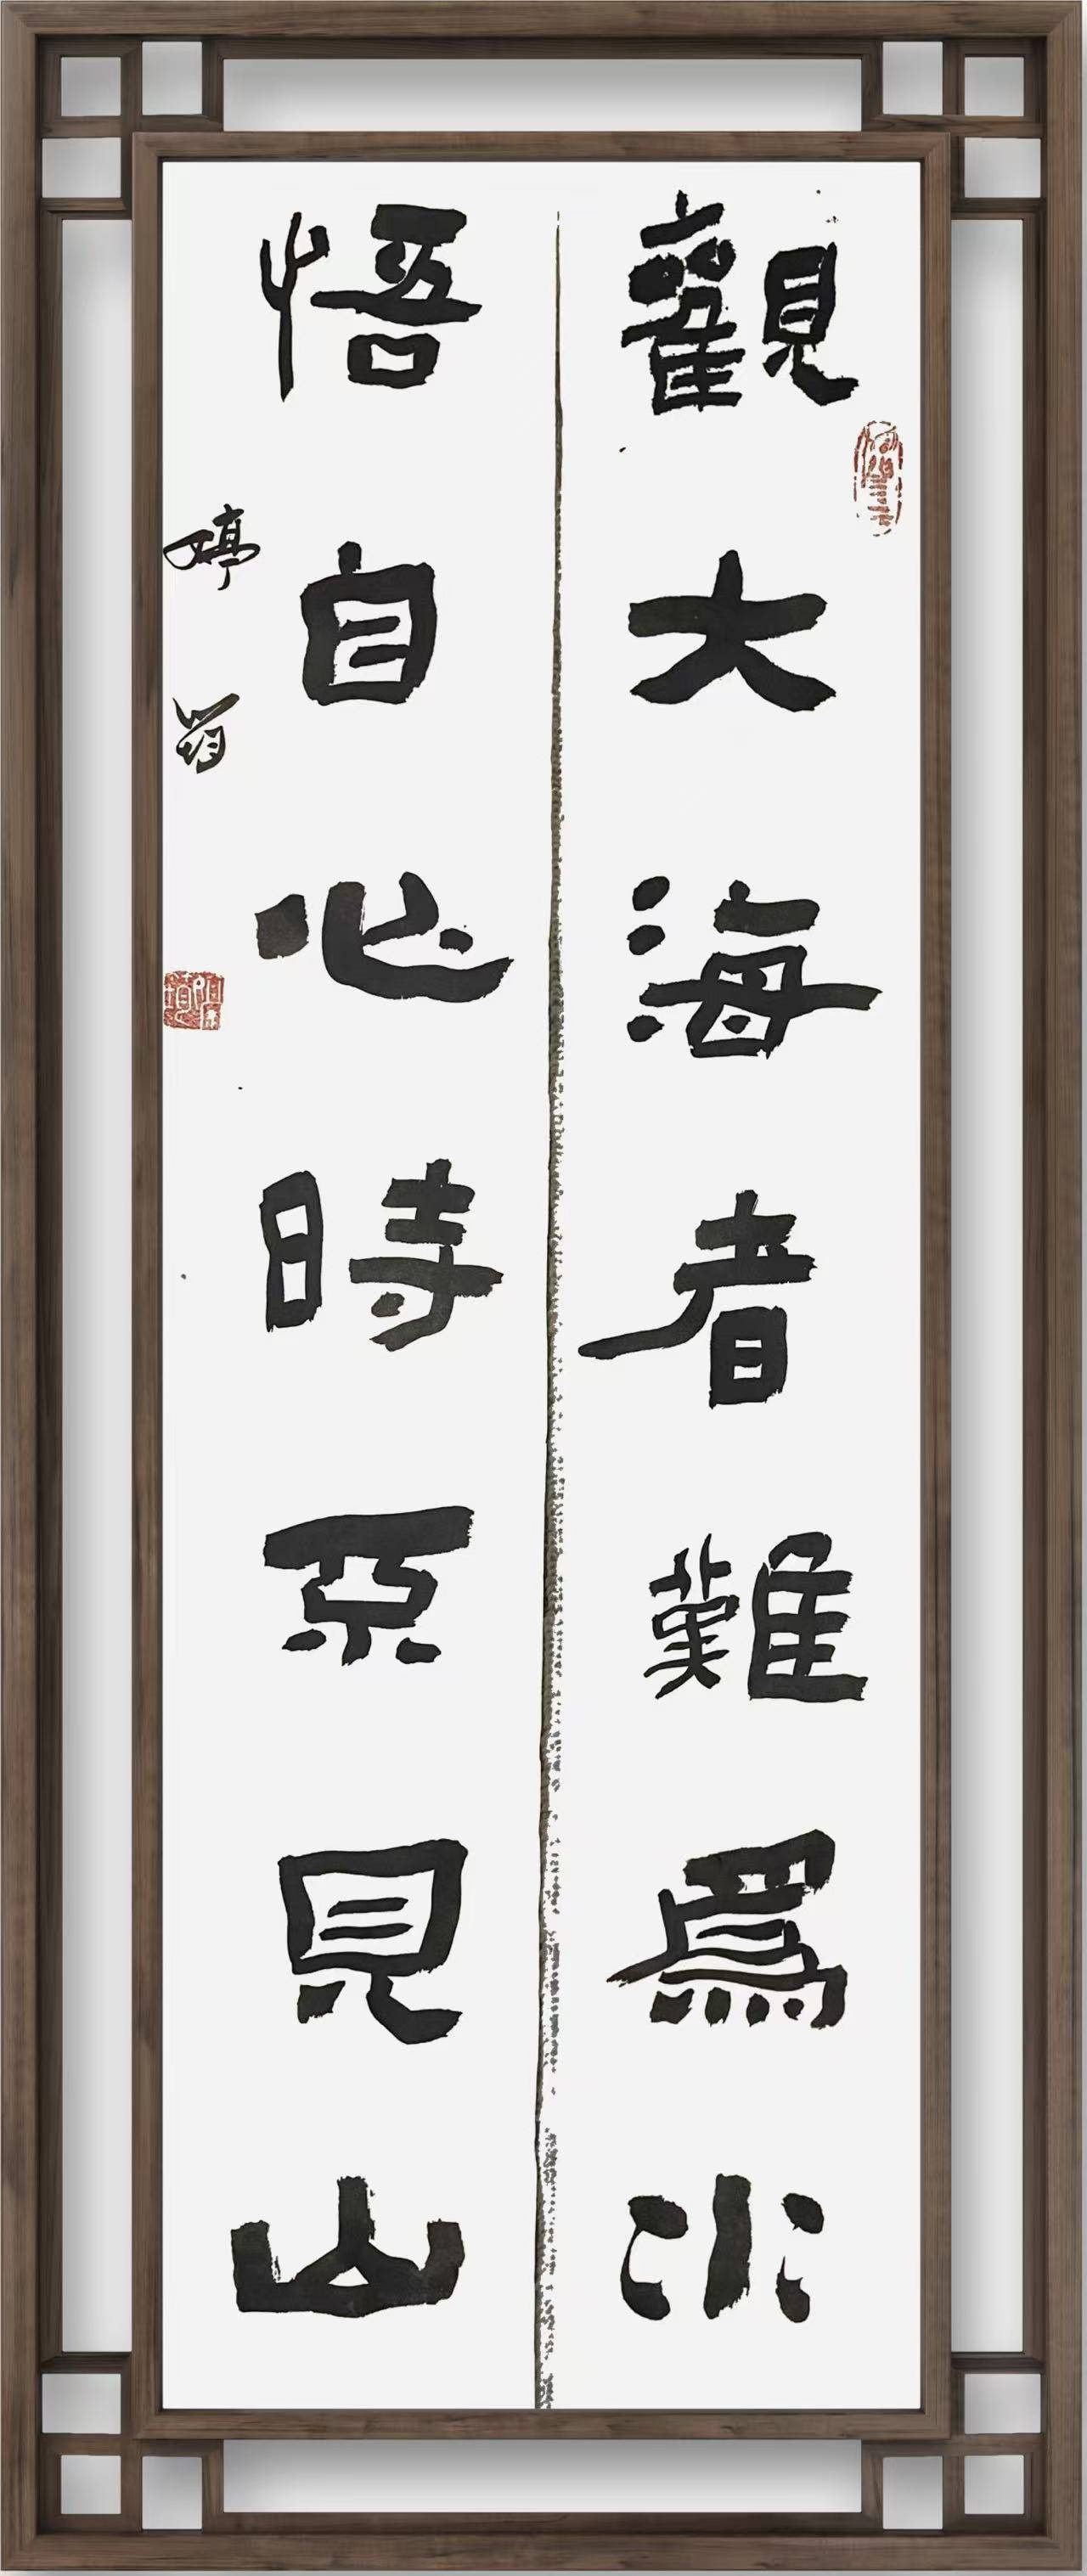 觀大海者難爲水
悟自心時不見山
婷